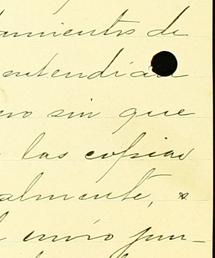 amientos de
entendian
ero sin que
las copias
almente, 
l envio jun-